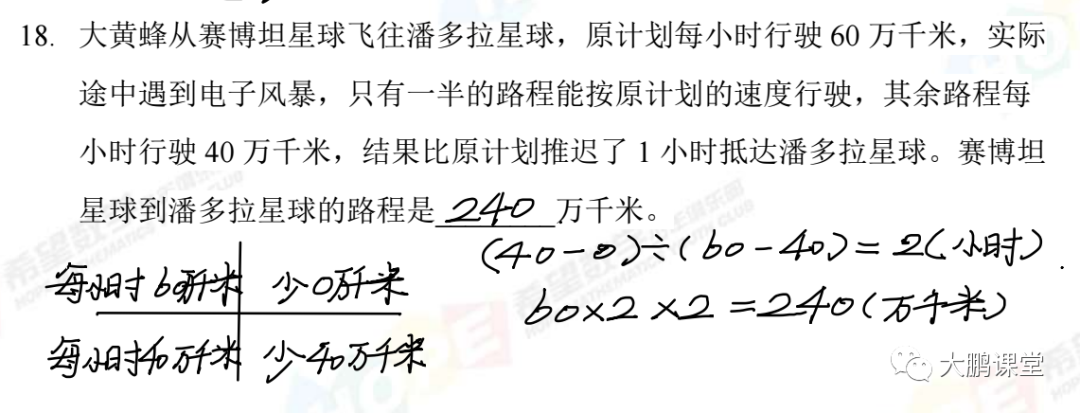 18. 大黄蜂从赛博坦星球飞往潘多拉星球，原计划每小时行驶 60 万千米，实际
途中遇到电子风暴，只有一半的路程能按原计划的速度行驶，其余路程每
小时行驶 40 万千米，结果比原计划推迟了 1 小时抵达潘多拉星球。赛博坦
星球到潘多拉星球的路程是 240 万千米。
(40-0)÷(60-40)=2(小时)
每小时60万千米 少0万千米
60×2×2=240(万千米)
每小时40万千米 少40万千米
大鹏课堂